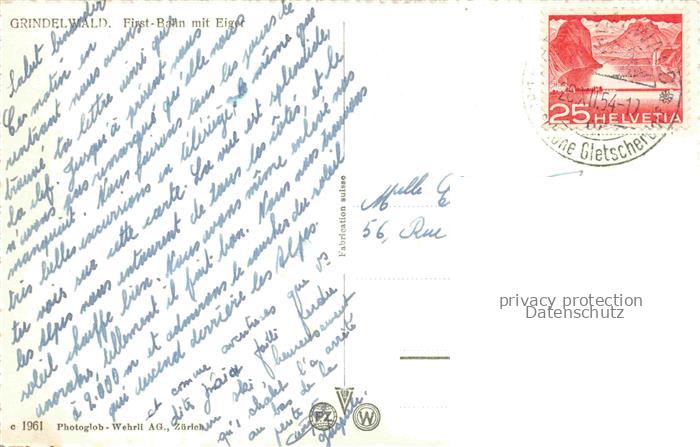 GRINDELWALD. First-Bahn mit Eiger
Salut
Ce matin en
rentrant nous avons
trouvé ta lettre ainsi que
la clef. Jusqu'à présent nous
n'avons pas remarqué qu'elle nous
manquait. Nous faisons tous les jours de
très belles excursions en télésiège, le même que
tu vois sur cette carte. La vue est splendide,
les Alpes nous entourent de tous les côtés, et le
soleil chauffe bien. Nous avons même enlevé nos
anoraks, tellement il fait bon. Nous nous trouvons
à 2.000 m et admirons le coucher du soleil
qui descend derrière les Alpes.
et comme aventures que
dite j'ai perdu
un ski heureusement
qu'il s'est arrêté
au bas de la
pente
Fabrication suisse
Mlle
56, Rue
25 HELVETIA
54-12
Gletscher
privacy protection
Datenschutz
c 1961 Photoglob-Wehrli AG., Zürich
PZ
V
W